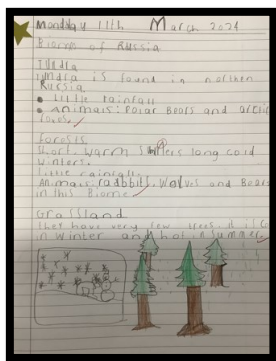 Monday 11th March 2024
Biomes of Russia
Tundra
Tundra is found in northen
Russia
• Little rainfall
• Animals: Polar Bears and arctic
foxes.
Forests
Short warm summers long cold
winters.
Little rainfall.
Animals: rabbits, Wolves and Bears
in this Biome
Grassland
They have very few trees. it is
in Winter and hot in Summer.